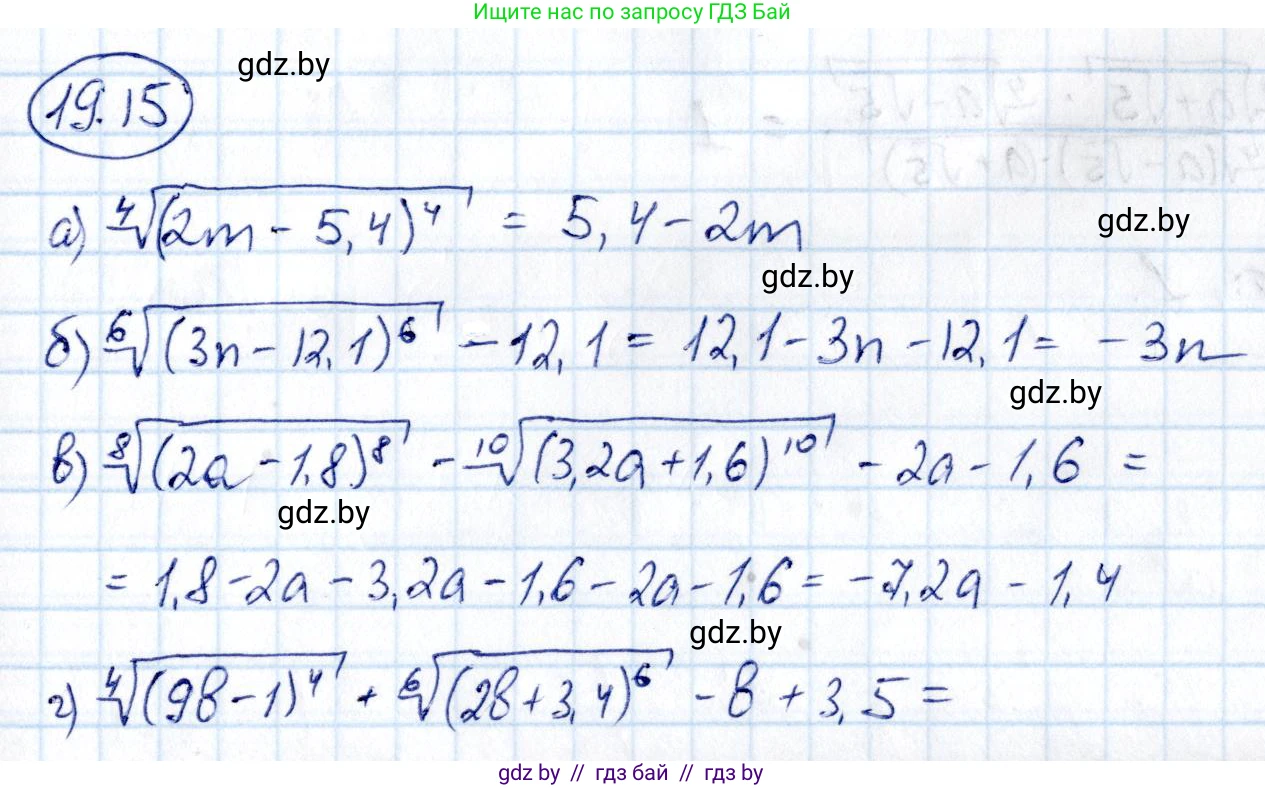 Ищите нас по запросу ГДЗ Бай
gdz.by
19.15
а) ⁴√(2m - 5,4)⁴ = 5,4 - 2m
gdz.by
gdz.by
б) ⁶√(3n - 12,1)⁶ - 12,1 = 12,1 - 3n - 12,1 = - 3n
gdz.by
в) ⁸√(2a - 1,8)⁸ - ¹⁰√(3,2a + 1,6)¹⁰ - 2a - 1,6 =
gdz.by
= 1,8 - 2a - 3,2a - 1,6 - 2a - 1,6 = - 7,2a - 1,4
gdz.by
г) ⁴√(9b - 1)⁴ + ⁶√(2b + 3,4)⁶ - b + 3,5 =
gdz by // гдз бай // гдз by